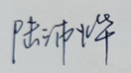 陆沛烨